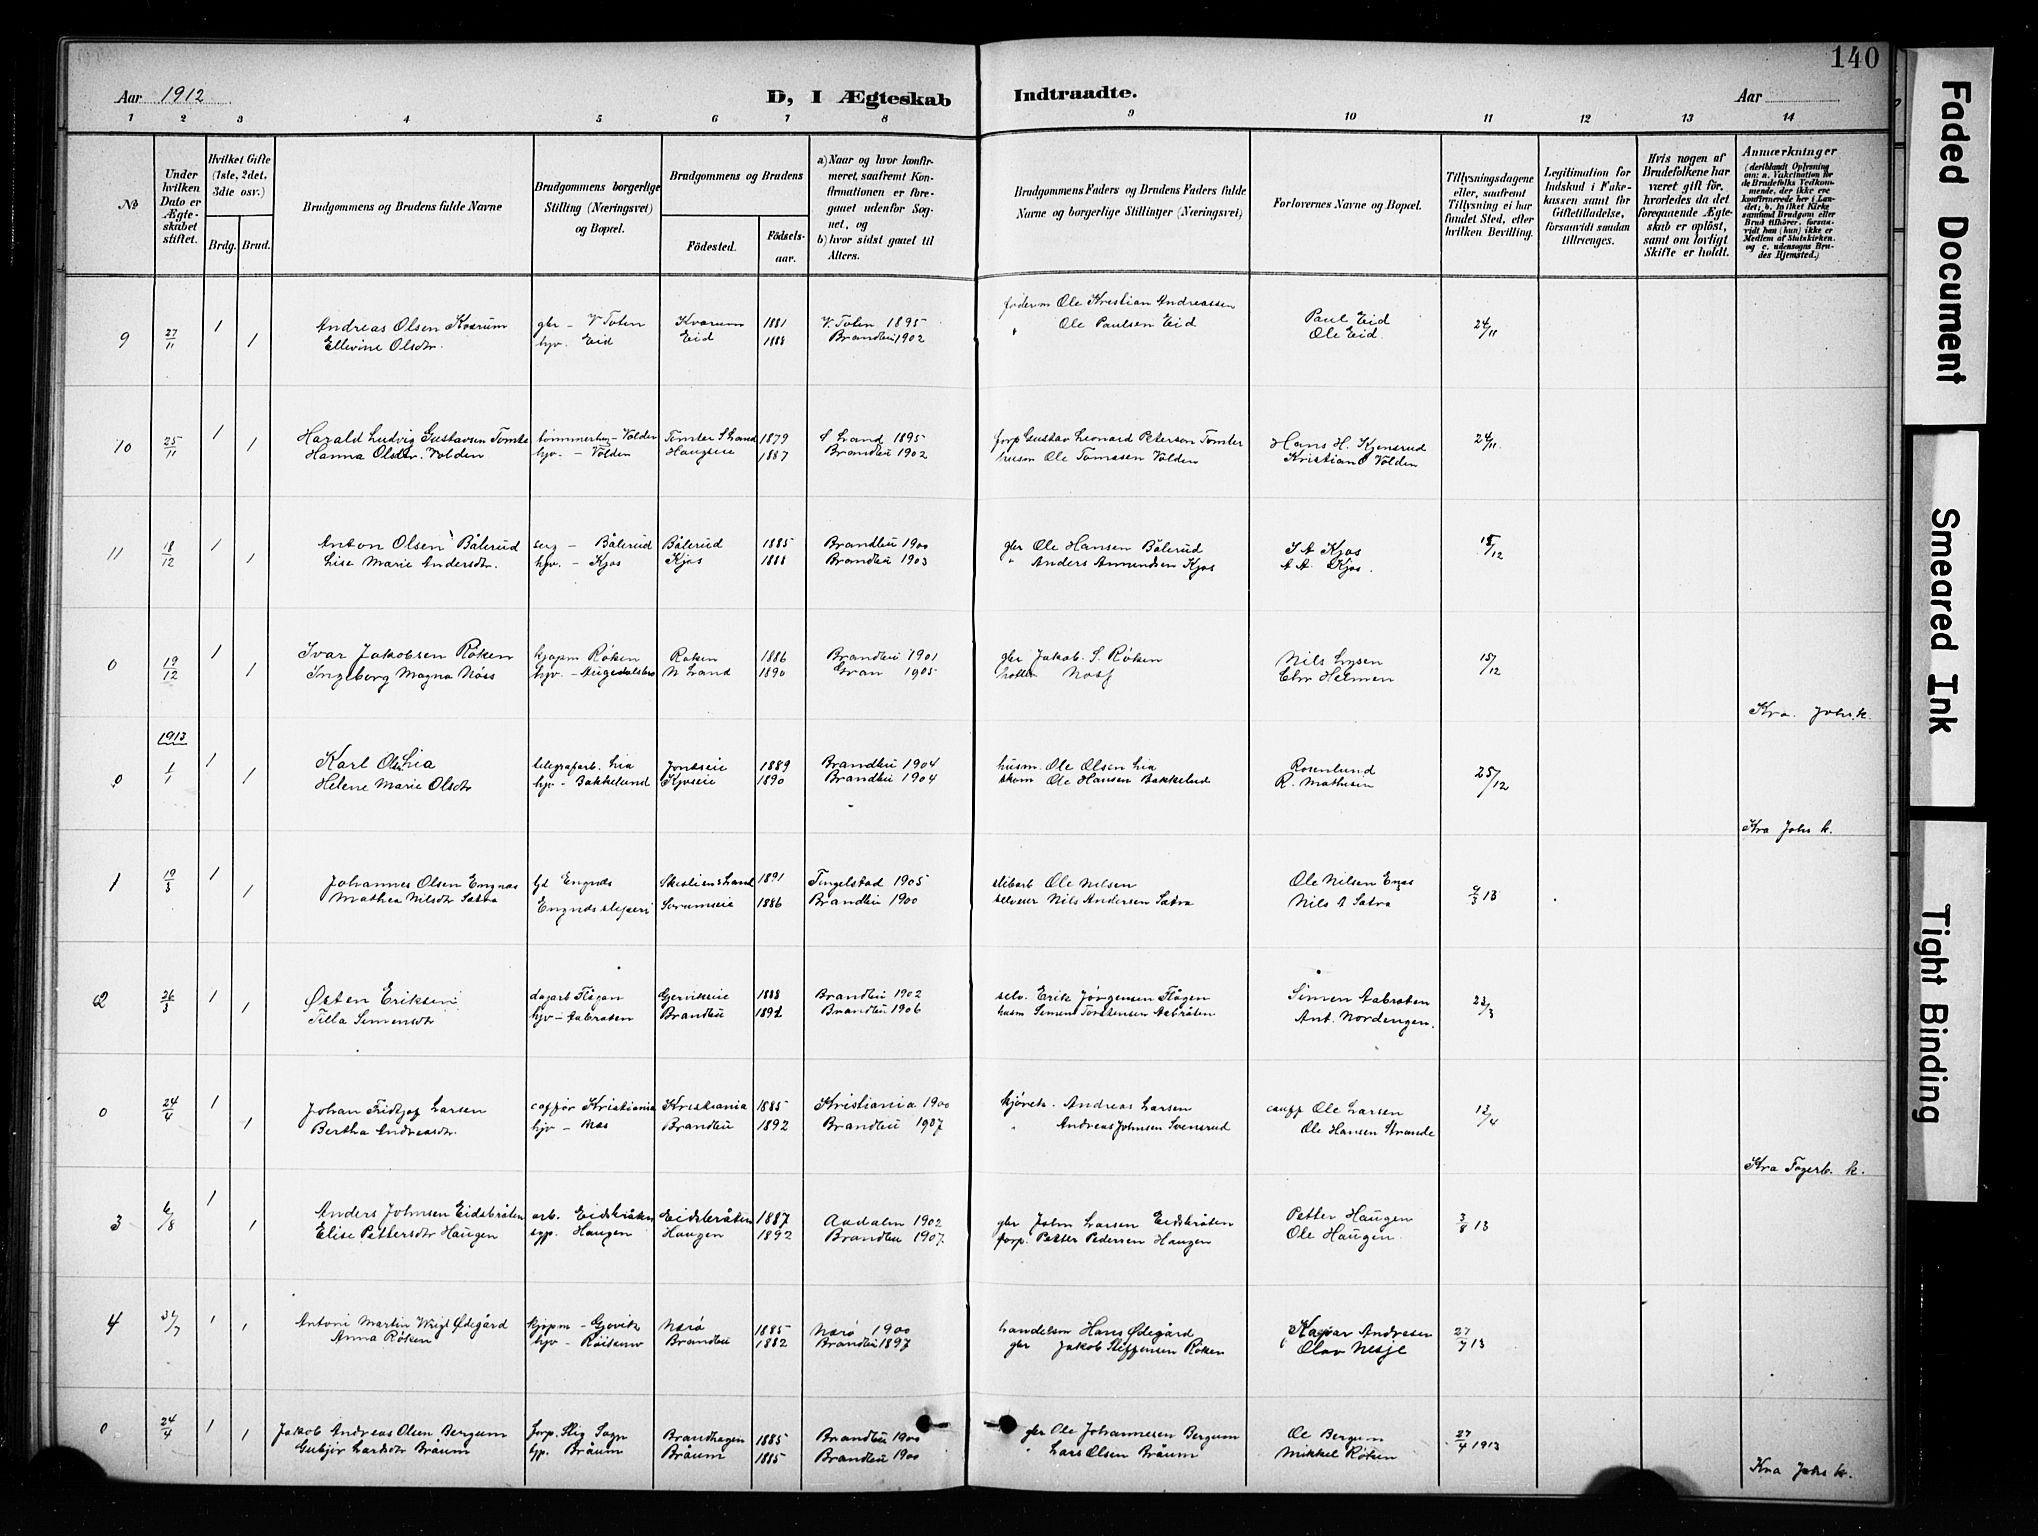 140
Aar 1912
D, I Ægteskab Indtraadte.
Aar
1 2 3 4 5 6 7 8 9 10 11 12 13 14
№
Under hvilken Dato er Ægteskabet stiftet.
Hvilket Gifte (1ste, 2det, 3die osv.)
Brdg. Brud.
Brudgommens og Brudens fulde Navne
Brudgommens borgerlige Stilling (Næringsvei) og Bopæl.
Brudgommens og Brudens
Fødested.
Fødselsaar.
a) Naar og hvor konfirmeret, saafremt Konfirmationen er foregaaet udenfor Sognet, og
b) hvor sidst gaaet til Alters.
Brudgommens Faders og Brudens Faders fulde Navne og borgerlige Stillinger (Næringsvei)
Forlovernes Navne og Bopæl.
Tillysningsdagene eller, saafremt Tillysning ei har fundet Sted, efter hvilken Bevilling.
Legitimation for Indskud i Fakkassen samt for Giftetilladelse, forsaavidt saadan tiltrænges.
Hvis nogen af Brudefolkene har været gift før, hvorledes da det foregaaende Ægteskab er opløst, samt om lovligt Skifte er holdt.
Anmærkninger
9 27/11 1 Andreas Olsen Kvarum gbr - V Toten Kvarum 1881 V. Toten 1895 føderm Ole Kristian Andreassen Paul Eid 24/11
1 Ellevine Olsdtr. hjv. Eid Eid 1888 Brandbu 1902 " Ole Paulsen Eid Ole Eid
10 25/11 1 Harald Ludvig Gustavsen Tomte tømmerhug - Volden Tomter S Land 1879 S Land 1895 forp Gustav Leonard Peterson Tomter Hans H. Kjensrud 24/11
1 Hanna Olsdtr. Volden hjv. - Volden Haugseie 1887 Brandbu 1902 husm Ole Tomasen Volden Kristian O Volden
11 18/12 1 Anton Olsen Bålerud - Bålerud Bålerud 1885 Brandbu 1900 gbr Ole Hansen Bålerud Kjos 15/12
1 Lise Marie Andersdtr. hjv. - Kjos Kjos 1888 Brandbu 1903 " Anders Amundsen Kjos A A. Kjos.
0 19/12 1 Ivar Jakobsen Røken kjøpm Røken Røken 1886 Brandbu 1901 gbr Jakob S. Røken Nils Lysen 15/12
1 Ingeborg Magna Næss hjv. - N Land 1890 Gran 1905
Kra. Johs. k.
1913
0 1/1 1 Karl Ols. Lia telegrafarb. Lia Jontseie 1889 Brandbu 1904 husm. Ole Olsen Lia Rosenlund 25/12
1 Helene Marie Olsdtr hjv - Bakkelund Kjoseie 1890 Brandbu 1904 skom Ole Hansen Bakkelund R. Mathisen
Kra Johs k.
1 19/3 1 Johannes Olsen Engnæs Engnæs 1891 Tingelstad 1905 slibarb Ole Nilsen Ole Nilsen 9/3 13
1 Mathea Nilsdtr Sætra Engnæs sliperi Sørumseie 1886 Brandbu 1900 selveier Nils Andersen Sætra Nils A Sætra
2 26/3 1 Østen Eriksen dagarb Flågan Gjervikseie 1888 Brandbu 1902 selv. Erik Jørgensen Flågen Simen Aabråten 23/3
1 Tilla Simensdtr hjv - Aabråten Brandbu 1892 Brandbu 1906 husm Simen Torstensen Aabråten Ant. Nordengen.
0 24/4 1 Johan Fridtjof Larsen Kristiania Kristiania 1885 Kristiania 1900 kjørek. Andreas Larsen Ole Larsen 13/4
1 Bertha Andreasdtr. hjv - Næs Brandbu 1892 Brandbu 1907 " Andreas Johnsen Svensrud Ole Hansen Strande
Kra Fagerb. k.
3 6/8 1 Anders Johnsen Eidsbråten arb. Eidsbråten Eidsbråten 1887 Aadalen 1902 gbr John Larsen Eidsbråten Petter Haugen 3/8 13
1 Elise Pettersdtr Haugen syp. Haugen Haugen 1892 Brandbu 1907 forp. Petter Pedersen Haugen Ole Haugen.
4 31/7 1 Antoni Martin Ødegård kjøpm - Gjøvik Nærø 1885 Nærø 1900 handelsm Hans Ødegård Kaspar Andresen 27/7 13
1 Anna Røken hjv - Brandbu 1882 Brandbu 1897 gbr Jakob Steffensen Røken Olav Nesje
0 24/4 1 Jakob Andreas Olsen Bergum forp. Brandhagen 1885 Brandbu 1900 gbr Ole Johannesen Bergum Ole Bergum 27/4 1913
1 Gubjør Larsdtr Bråum hjv. Bråum Bråum 1885 Brandbu 1900 Lars Olsen Bråum Mikkel Røken
Kra Johs k.
Faded Document
Smeared Ink
Tight Binding